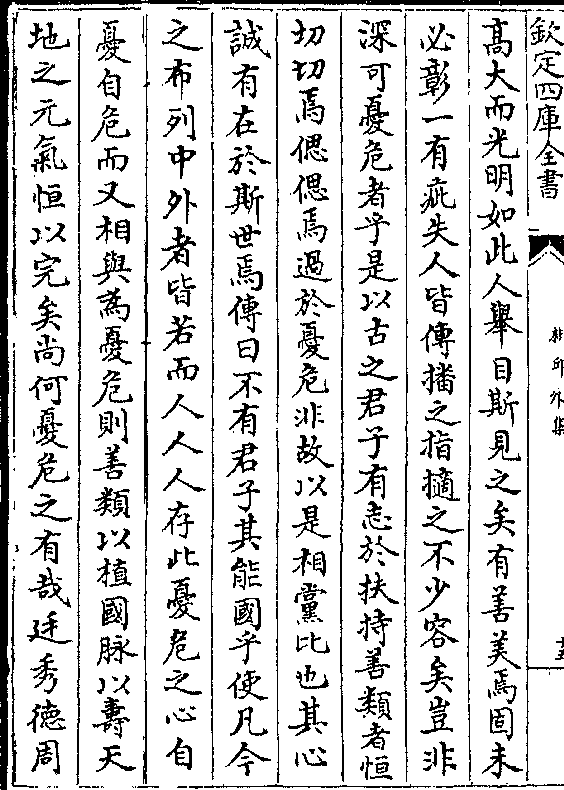 欽定四庫全書
椒邱外集
十五
高大而光明如此人舉目斯見之矣有善美焉固未
必彰一有疵失人皆傳播之指擿之不少容矣豈非
深可憂危者乎是以古之君子有志於扶持善類者恒
切切焉偲偲焉過於憂危非故以是相黨比也其心
誠有在於斯世焉傳曰不有君子其能國乎使凡今
之布列中外者皆若而人人人存此憂危之心自
憂自危而又相與為憂危則善類以植國脉以壽天
地之元氣恒以完矣尚何憂危之有哉廷秀德周